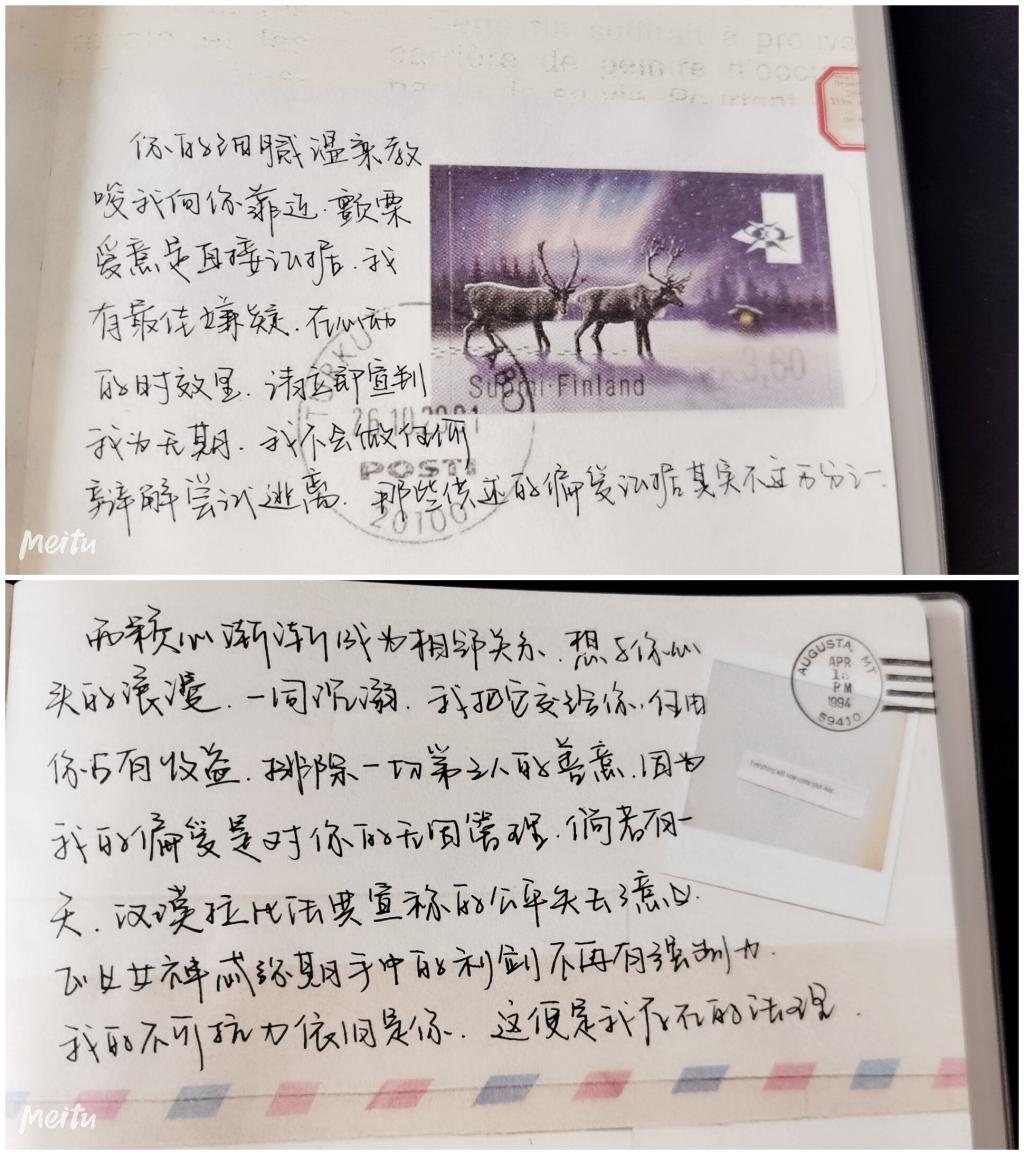 ette fin suffirait à prouve
carrière de peintre n'occu
你的细腻温柔教
唆我向你靠近.颤栗
爱意是直接证据.我
有最佳嫌疑.在心动
的时效里.请立即宣判
我为无期.我不会做任何
辩解尝试逃离.那些供述的偏爱证据其实不过万分之一.
Suomi·Finland
3,60
TURKU ÅBO
26.10.2001
POSTI
20100
Meitu
两颗心渐渐成为相邻关系.想与你心
头的浪漫.一同沉溺.我把它交给你.任由
你占有收益.排除一切第三人的善意.因为
我的偏爱是对你的无因管理.倘若有一
天.汉谟拉比法典宣称的公平失去了意义.
正义女神忒弥斯手中的利剑不再有强制力.
我的不可抗力依旧是你.这便是我存在的法理.
AUGUSTA, MT
APR
PM
1994
59410
Everything will now come your way
Meitu